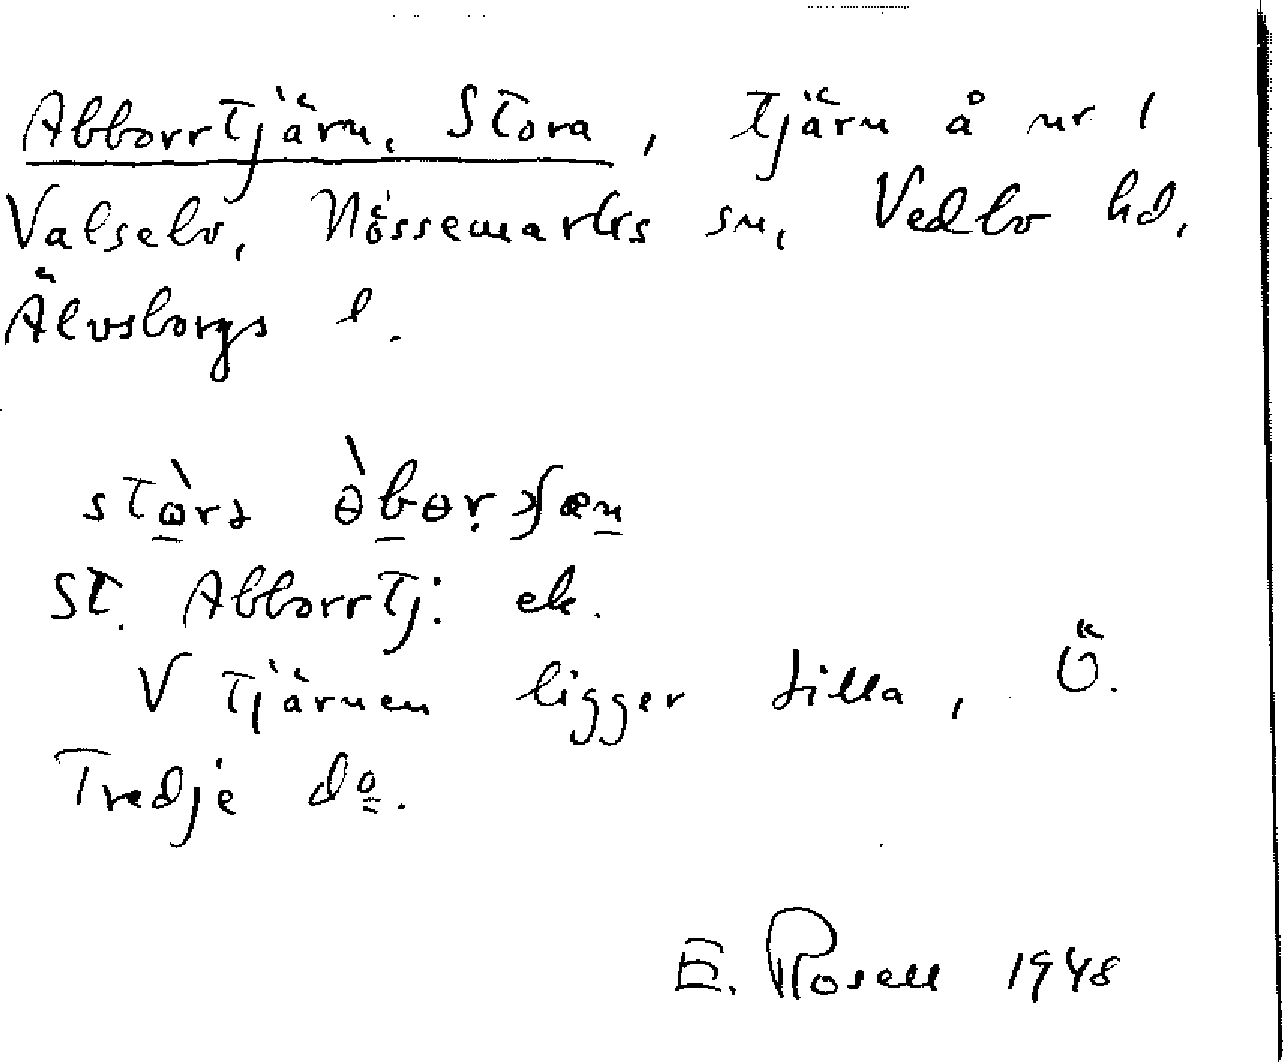 Abborrtjärn, Stora, tjärn å nr 1
Valsebo, Nössemarks sn, Vedbo hd,
Älvsborgs l.
St. Abborrtj: ek.
V tjärnen ligger Lilla, Ö.
Tredje do.
E. Rosell 1948